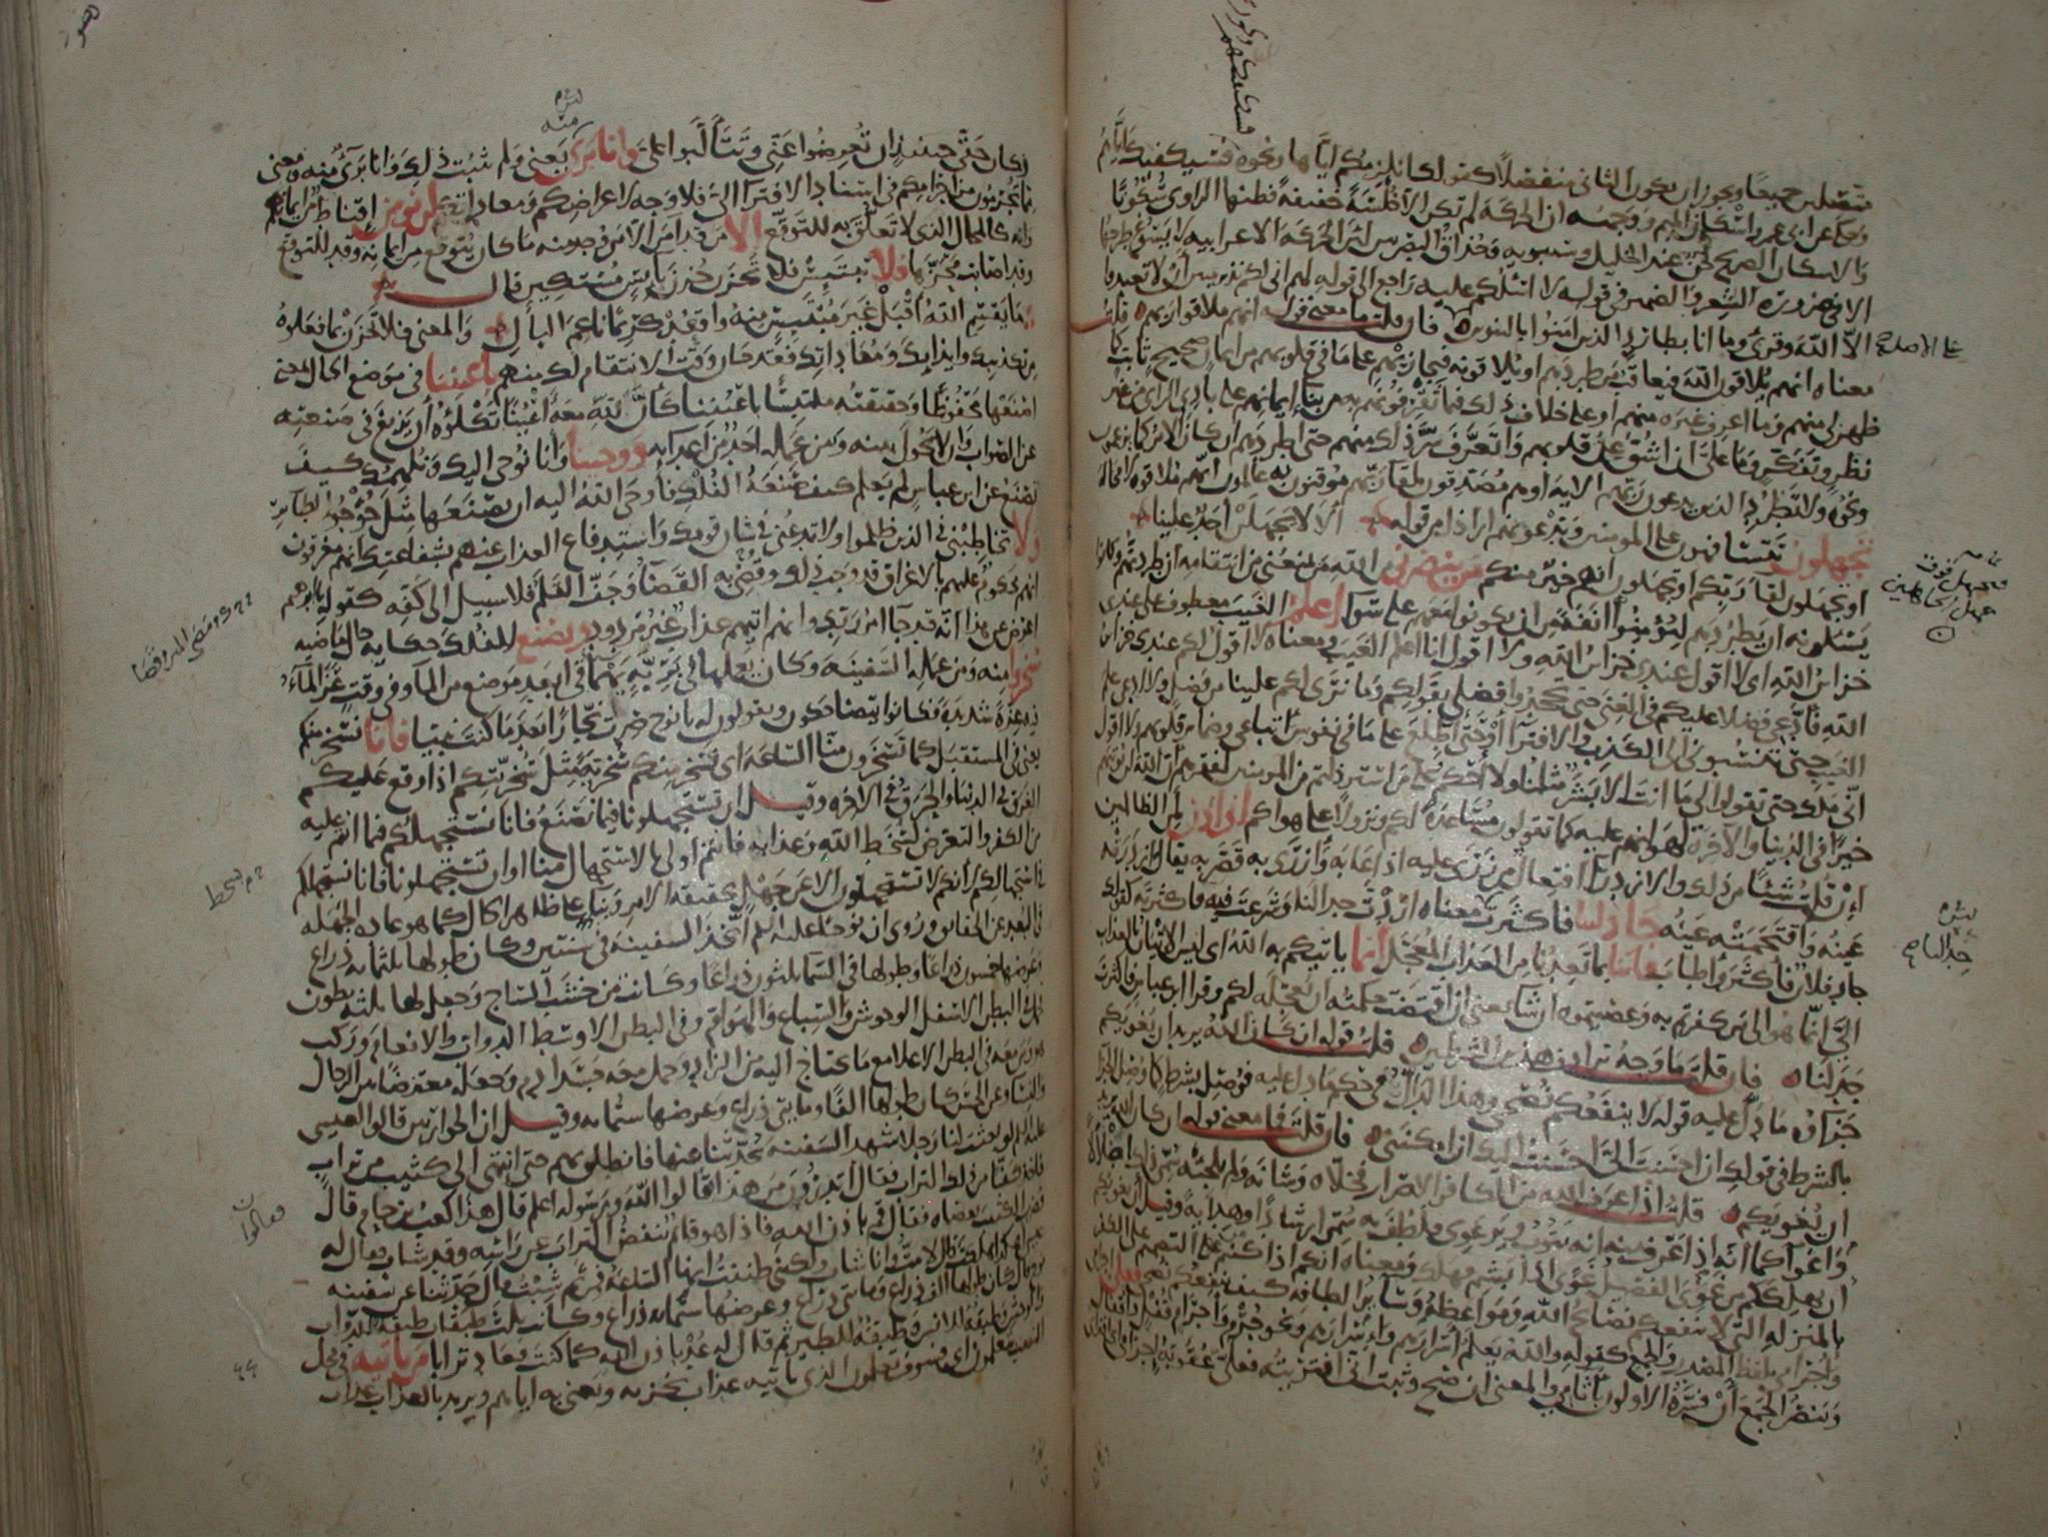 متصلين جميعا ويجوز ان يكون الثاني منفصلا كقولك انلزمكم اياها ونحوه فسيكفيكهم
وحكي عن ابي عمرو اسكان الميم ووجهه ان الحركة لم تكن الا خلسة خفيفة فظنها الراوي سكونا
والاسكان الصريح لحن عند الخليل وسيبويه وحذاق البصريين لان الحركة الاعرابية لا يسوغ طرحها
الا في ضرورة الشعر والضمير في قوله لا اسئلكم عليه راجع الى قوله لهم اني لكم نذير مبين ان لا تعبدوا
الا الله وقرئ وما انا بطارد الذين امنوا بالتنوين فان قلت ما معنى قوله انهم ملاقوا ربهم قلت
معناه انهم يلاقون الله فيعاقب من طردهم او يلاقونه فيجازيهم على ما في قلوبهم من ايمان صحيح ثابت كما
ظهر لي منهم وما اعرف غيره منهم او على خلاف ذلك مما تقرفونهم به من بناء ايمانهم على بادي الراي من غير
نظر وتفكر وما علي ان اشق عن قلوبهم واتعرف سر ذلك منهم حتى اطردهم ان كان الامر كما تزعمون
ونحوه ولا تطرد الذين يدعون ربهم الاية او هم مصدقون بلقاء ربهم موقنون به عالمون انهم ملاقوه لا محالة
تجهلون تتسافهون على المومنين وتدعونهم اراذل من قوله الا لا يجهلن احد علينا
او تجهلون لقاء ربكم او تجهلون انهم خير منكم من ينصرني من الله من يمنعني من انتقامه ان طردتهم وكانوا
يسئلونه ان يطردهم ليؤمنوا انفة من ان يكونوا معهم على سواء اعلم الغيب معطوف على عندي
خزائن الله اي لا اقول عندي خزائن الله ولا اقول انا اعلم الغيب ومعناه لا اقول لكم عندي خزائن
الله فادعي فضلا عليكم في الغنى حتى تجحدوا فضلي بقولكم وما نرى لكم علينا من فضل ولا ادعي علم
الغيب حتى تنسبوني الى الكذب والافتراء او حتى اطلع على ما في نفوس اتباعي وضمائر قلوبهم ولا اقول
اني ملك حتى تقولوا لي ما انت الا بشر مثلنا ولا احكم على من استرذلتم من المومنين لفقرهم ان الله لن يؤتيهم
خيرا في الدنيا والاخرة لهوانهم عليه كما تقولون مساعدة لكم ونزولا على هواكم اني اذن لمن الظالمين
ان قلت شيئا من ذلك والازدراء افتعال من زرى عليه اذا عابه وازرى به قصر به يقال ازدرته
عينه واقتحمته عينه جادلتنا فاكثرت معناه اردت جدالنا وشرعت فيه فاكثرته كقولك
جاد فلان فاكثر واطاب فاتنا بما تعدنا من العذاب المعجل انما ياتيكم به الله اي ليس الاتيان بالعذاب
الي انما هو الى من كفرتم به وعصيتموه ان شاء يعني ان اقتضت حكمته ان يعجله لكم وقرا ابن عباس فاكثرت
جدلنا فان قلت ما وجه ترادف هذين الشرطين قلت قوله ان كان الله يريد ان يغويكم
جزاؤه ما دل عليه قوله لا ينفعكم نصحي وهذا الدال في حكم ما دل عليه فوصل بشرط كما وصل الجزاء
بالشرط في قولك ان احسنت الي احسنت اليك ان امكنني فان قلت فما معنى قوله ان كان الله يريد
ان يغويكم قلت اذا عرف الله من الكافر الاصرار فخلاه وشانه ولم يلجئه سمي ذلك اضلالا
واغواء كما انه اذا عرف منه انه يتوب ويرعوي فلطف به سمي ارشادا وهداية وقيل ان يغويكم
ان يهلككم من غوى الفصيل غوى اذا بشم فهلك ومعناه انكم اذا كنتم من التصميم على الكفر
بالمنزلة التي لا تنفعكم نصائح الله ومواعظه وسائر الطافه كيف ينفعكم نصحي فعلي اجرامي
واجرام بلفظ المصدر والجمع كقوله والله يعلم اسرارهم واسرارهم ونحو جرم واجرام قفل واقفال
وينصر الجمع ان فسره الاولون باثامي والمعنى ان صح وثبت اني افتريته فعلي عقوبة اجرامي اي افترائي
على الاصل صح
فتجهل فوق
جهل الجاهلينا
جدالنا صح
وكان حقي حينئذ ان تعرضوا عني وتتألبوا علي وانا بري يعني ولم يثبت ذلك وانا بري منه ومعنى
مما تجرمون من اجرامكم في اسناد الافتراء الي فلا وجه لاعراضكم ومعاداتكم لن يومن اقناط من ايمانهم
وانه كالمحال الذي لا تعلق به للتوقع الا من قد امن الا من قد وجد منه ما كان يتوقع من ايمانه وقد للتوقع
وقد اصابت محزها فلا تبتئس فلا تحزن حزن بائس مستكين قال
ما يقسم الله اقبل غير مبتئس منه واقعد كريما ناعم البال والمعنى فلا تحزن بما فعلوه
من تكذيبك وايذائك ومعاداتك فقد حان وقت الانتقام لك منهم باعيننا في موضع الحال بمعنى
اصنعها محفوظا وحقيقته ملتبسا باعيننا كأن لله معه اعينا تكلؤه ان يزيغ في صنعته
عن الصواب وان لا يحول بينه وبين عمله احد من اعدائه ووحينا وانا نوحي اليك ونلهمك كيف
تصنع عن ابن عباس لم يعلم كيف صنعة الفلك فاوحى الله اليه ان يصنعها مثل جؤجؤ الطائر
ولا تخاطبني في الذين ظلموا ولا تدعني في شان قومك واستدفاع العذاب عنهم بشفاعتك انهم مغرقون
انهم محكوم عليهم بالاغراق قد وجب ذلك وقضي به القضاء وجف القلم فلا سبيل الى كفه كقوله يا ابرهيم
اعرض عن هذا انه قد جاء امر ربك وانهم اتيهم عذاب غير مردود ويصنع الفلك حكاية حال ماضية
سخروا منه ومن عمله السفينة وكان يعملها في برية بهماء في ابعد موضع من الماء وفي وقت عز الماء
فيه عزة شديدة فكانوا يتضاحكون ويقولون له يا نوح صرت نجارا بعد ما كنت نبيا فانا نسخر منكم
يعني في المستقبل كما تسخرون منا الساعة اي نسخر منكم سخرية مثل سخريتكم اذا وقع عليكم
الغرق في الدنيا والحرق في الاخرة وقيل ان تستجهلونا فيما نصنع فانا نستجهلكم فيما انتم عليه
من الكفر والتعرض لسخط الله وعذابه فانتم اولى بالاستجهال منا او ان تستجهلونا فانا نستجهلكم
في استجهالكم لانكم لا تستجهلون الا عن جهل بحقيقة الامر وبناء على ظاهر الحال كما هو عادة الجهلة
في البعد عن الحقائق وروي ان نوحا عليه السلم اتخذ السفينة في سنتين وكان طولها ثلثمائة ذراع
وعرضها خمسون ذراعا وطولها في السماء ثلثون ذراعا وكانت من خشب الساج وجعل لها ثلثة بطون
فحمل في البطن الاسفل الوحوش والسباع والهوام وفي البطن الاوسط الدواب والانعام وركب
هو ومن معه في البطن الاعلى مع ما يحتاج اليه من الزاد وحمل معه جسد ادم وجعله معترضا بين الرجال
والنساء وعن الحسن كان طولها الفا ومايتي ذراع وعرضها ستمائة وقيل ان الحواريين قالوا لعيسى
عليه السلم لو بعثت لنا رجلا شهد السفينة يحدثنا عنها فانطلق بهم حتى انتهى الى كثيب من تراب
فاخذ كفا من ذلك التراب فقال اتدرون من هذا قالوا الله ورسوله اعلم قال هذا كعب بن حام قال
فضرب الكثيب بعصاه فقال قم باذن الله فاذا هو قائم ينفض التراب عن راسه وقد شاب فقال له
عيسى اهكذا هلكت قال لا مت وانا شاب ولكنني ظننت انها الساعة فمن ثم شبت قال حدثنا عن سفينة
نوح قال كان طولها الف ذراع ومايتي ذراع وعرضها ستمائة ذراع وكانت ثلث طبقات طبقة للدواب
والوحش وطبقة للانس وطبقة للطير ثم قال له عد باذن الله كما كنت فعاد ترابا من ياتيه في محل
النصب بتعلمون اي فسوف تعلمون الذي ياتيه عذاب يخزيه ويعني به اياهم ويريد بالعذاب عذاب
منه
سخط